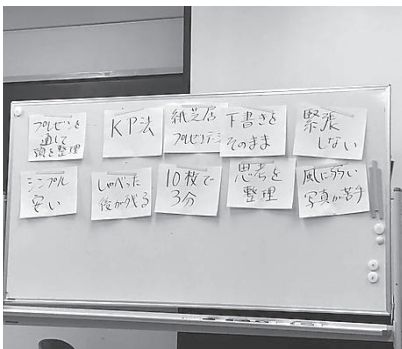 プレゼンを
通して
頭を整理
KP法
紙芝居
下書きを
そのまま
緊張
しない
シンプル
安い
しゃべった
後が残る
10枚で
3分
思考を
整理
風に弱い
写真が苦手